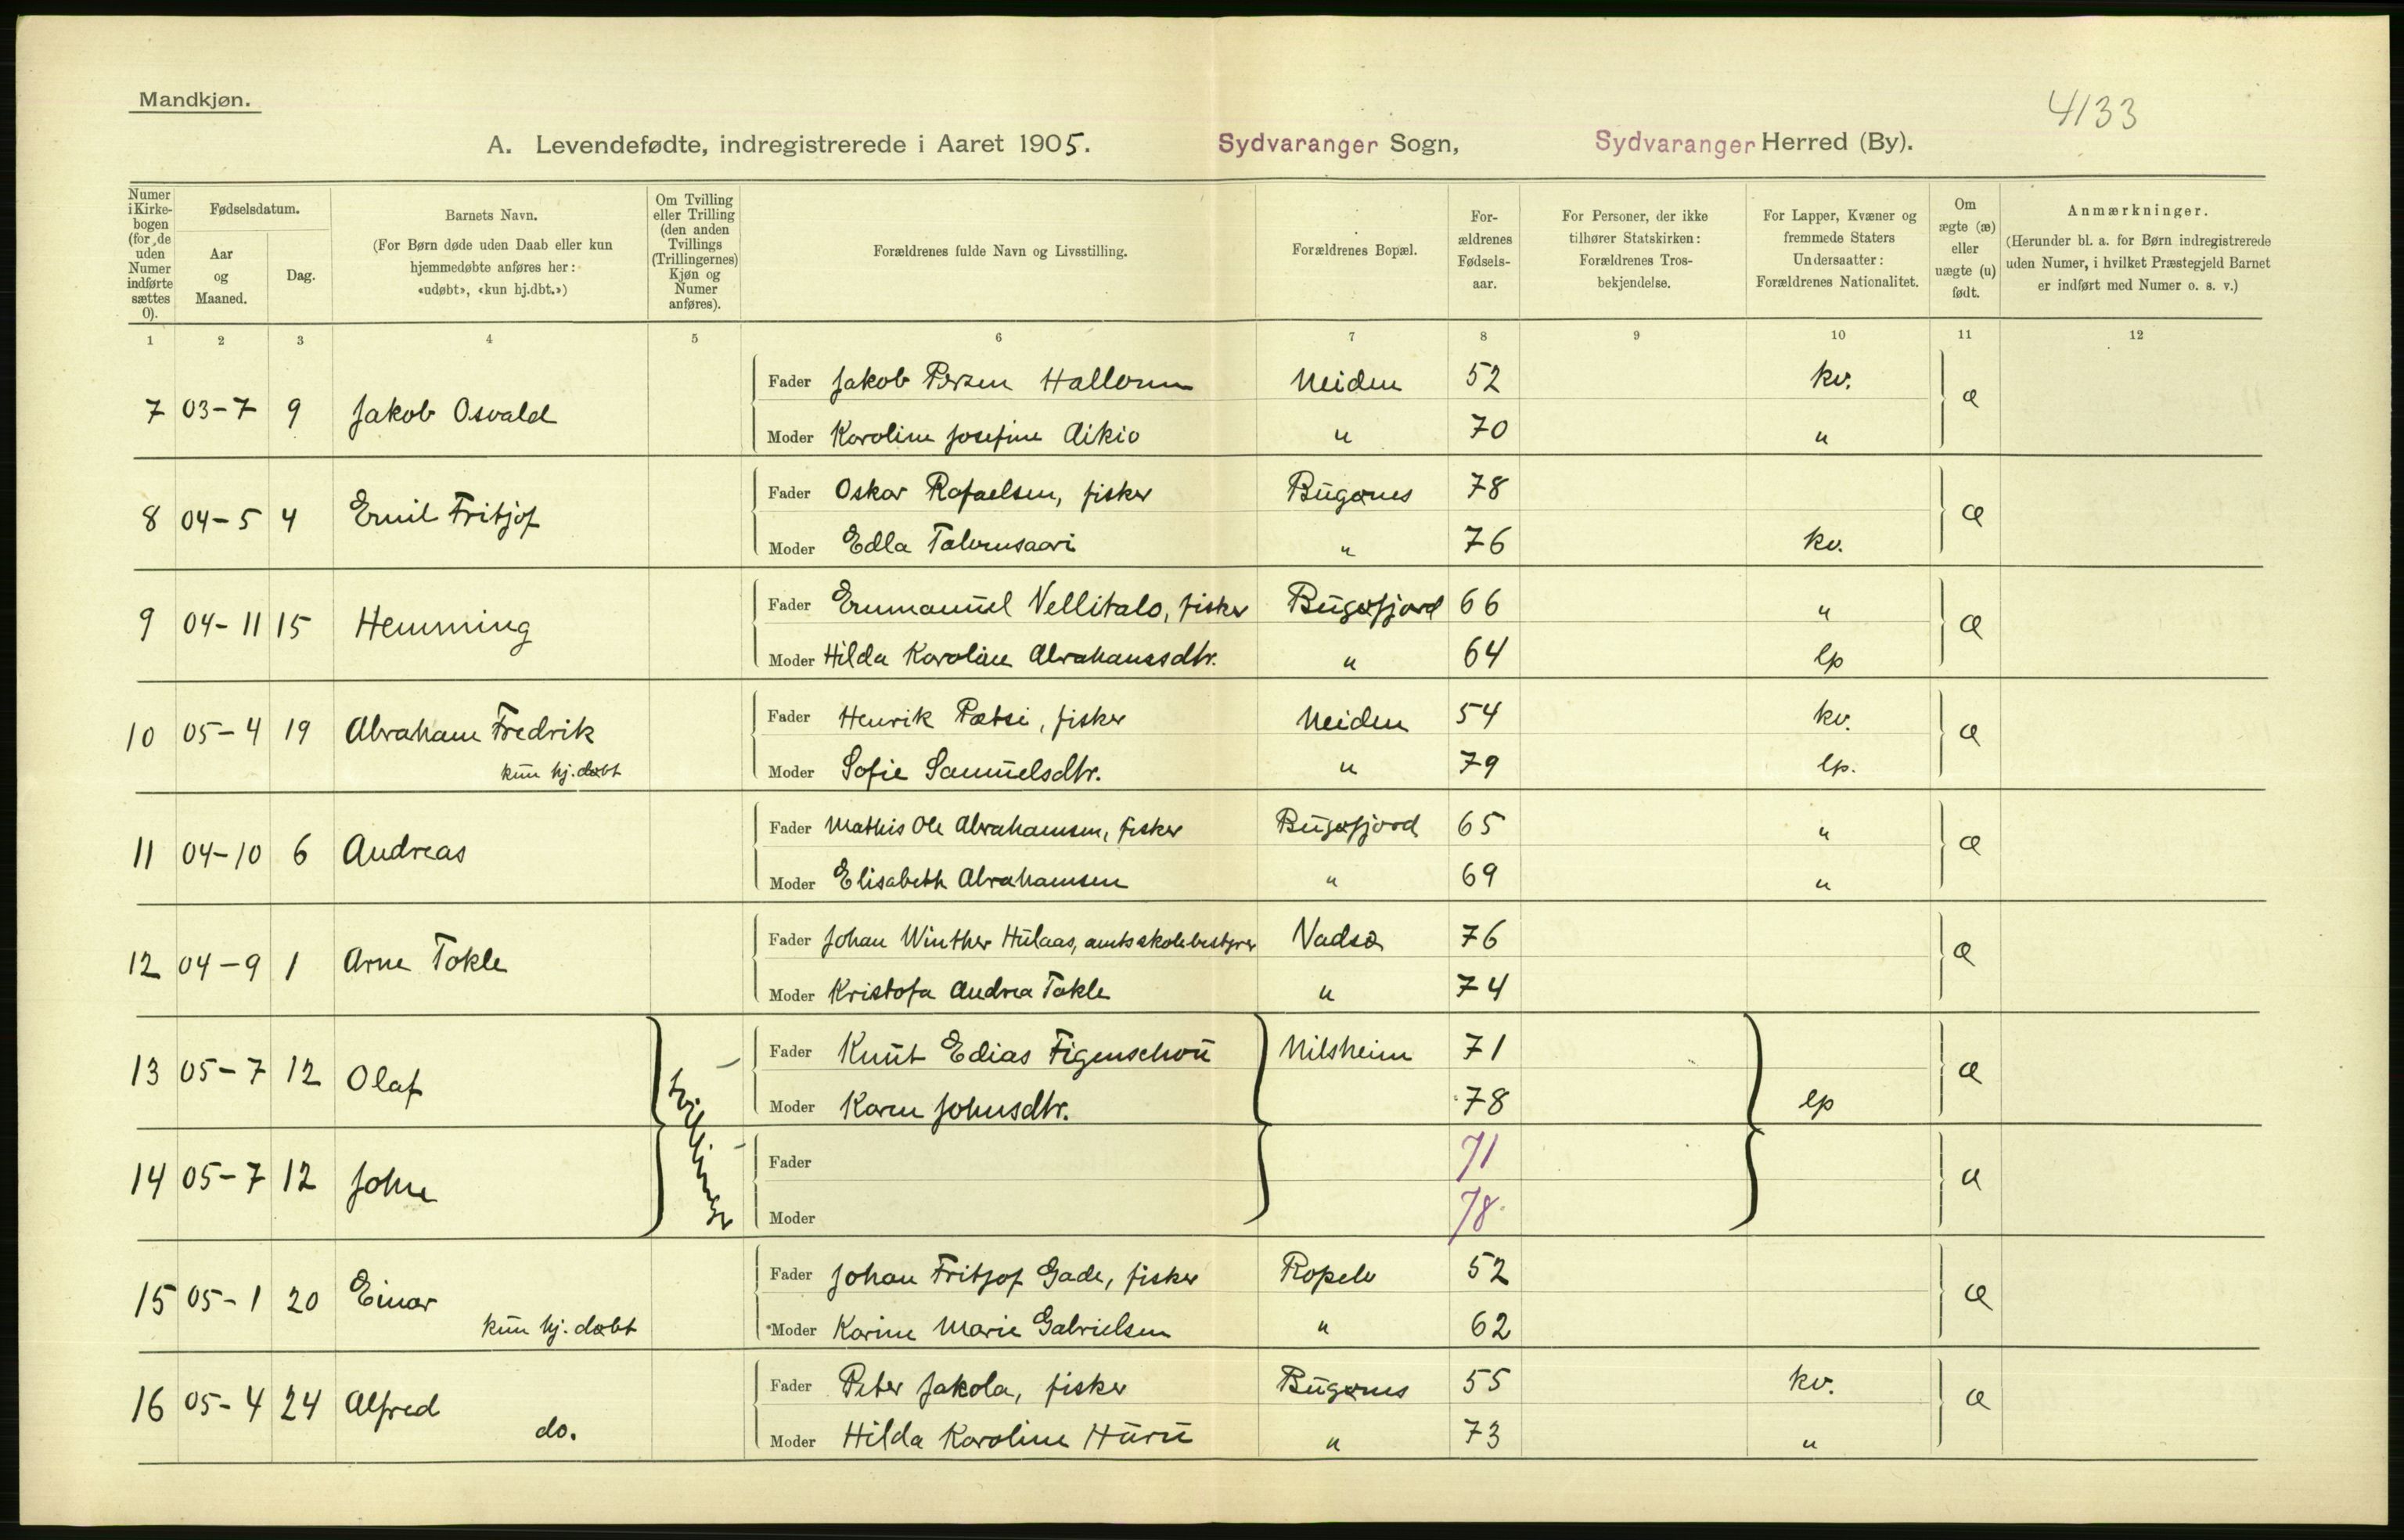 Mandkjøn.
4133
A. Levendefødte, indregistrerede i Aaret 1905. Sydvaranger Sogn, Sydvaranger Herred (By).
Numer i Kirke-bogen (for de uden Numer indførte sættes 0).
Fødselsdatum.
Aar og Maaned.
Dag.
Barnets Navn.
(For Børn døde uden Daab eller kun hjemmedøbte anføres her: «udøbt», «kun hj.dbt.»)
Om Tvilling eller Trilling (den anden Tvillings (Trillingernes) Kjøn og Numer anføres).
Forældrenes fulde Navn og Livsstilling.
Forældrenes Bopæl.
For-ældrenes Fødsels-aar.
For Personer, der ikke tilhører Statskirken: Forældrenes Tros-bekjendelse.
For Lapper, Kvæner og fremmede Staters Undersaatter: Forældrenes Nationalitet.
Om ægte (æ) eller uægte (u) født.
Anmærkninger.
(Herunder bl. a. for Børn indregistrerede uden Numer, i hvilket Præstegjeld Barnet er indført med Numer o. s. v.)
1 2 3 4 5 6 7 8 9 10 11 12
Fader Jakob Persen Hallonen Neiden 52 kv.
7 03-7 9 Jakob Osvald æ
Moder Karoline Josefine Aikio " 70 "
Fader Oskar Rafaelsen, fisker Bugønes 78
8 04-5 4 Emil Fritjof æ
Moder Edla Talvensaari " 76 kv.
Fader Emmanuel Vellitalo, fisker Bugøfjord 66 "
9 04-11 15 Hemming æ
Moder Hilda Karoline Abrahamsdtr. " 64 lp
Fader Henrik Pætsi, fisker Neiden 54 kv.
10 05-4 19 Abraham Fredrik æ
kun hj. døbt
Moder Sofie Samuelsdtr. " 79 lp.
Fader Mathis Ole Abrahamsen, fisker Bugøfjord 65 "
11 04-10 6 Andreas æ
Moder Elisabeth Abrahamsen " 69 "
Fader Johan Winther Hulaas, amtsskolebestyrer Vadsø 76
12 04-9 1 Arne Takle æ
Moder Kristofa Andrea Takle " 74
Fader Knut Edias Figenschou Nilsheim 71
13 05-7 12 Olaf tvillinger æ
Moder Karen Johnsdtr. 78 lp
Fader 71
14 05-7 12 John "
Moder 78
Fader Johan Fritjof Gade, fisker Ropelv 52
15 05-1 20 Einar æ
kun hj. døbt
Moder Karine Marie Gabrielsen " 62
Fader Peter Jakola, fisker Bugønes 55 kv.
16 05-4 24 Alfred æ
do.
Moder Hilda Karoline Huru " 73 "